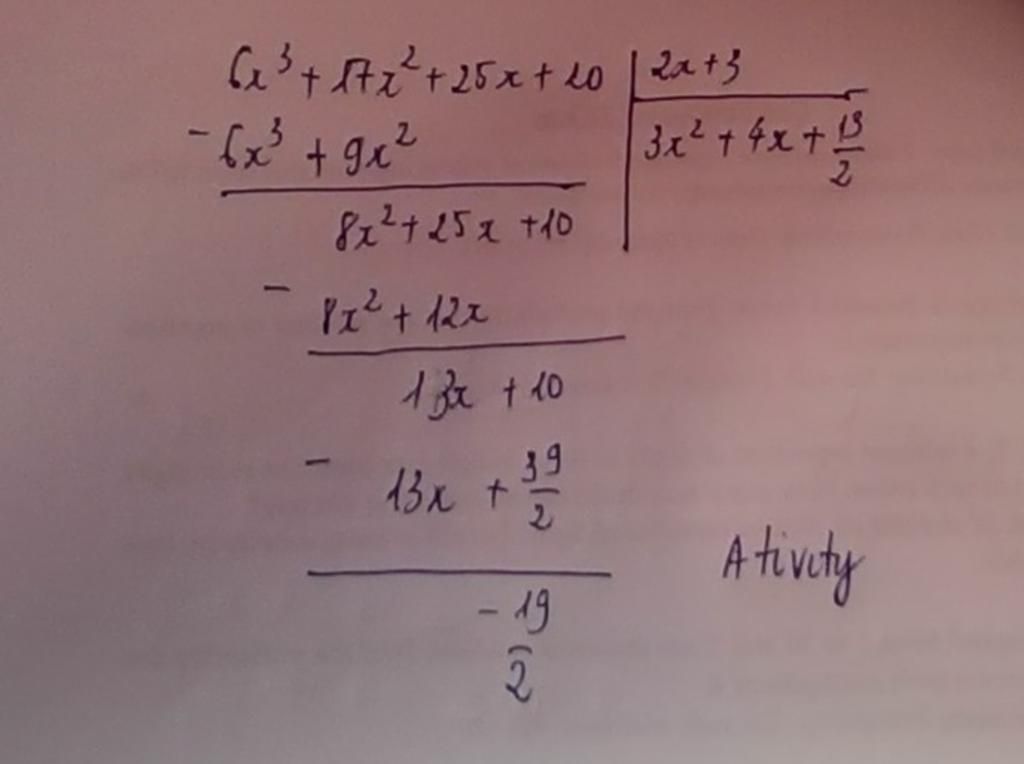 6x³ + 17x² + 25x + 10 | 2x + 3
- 6x³ + 9x² | 3x² + 4x + 13/2
8x² + 25x + 10
- 8x² + 12x
13x + 10
- 13x + 39/2
- 19/2
Ativity